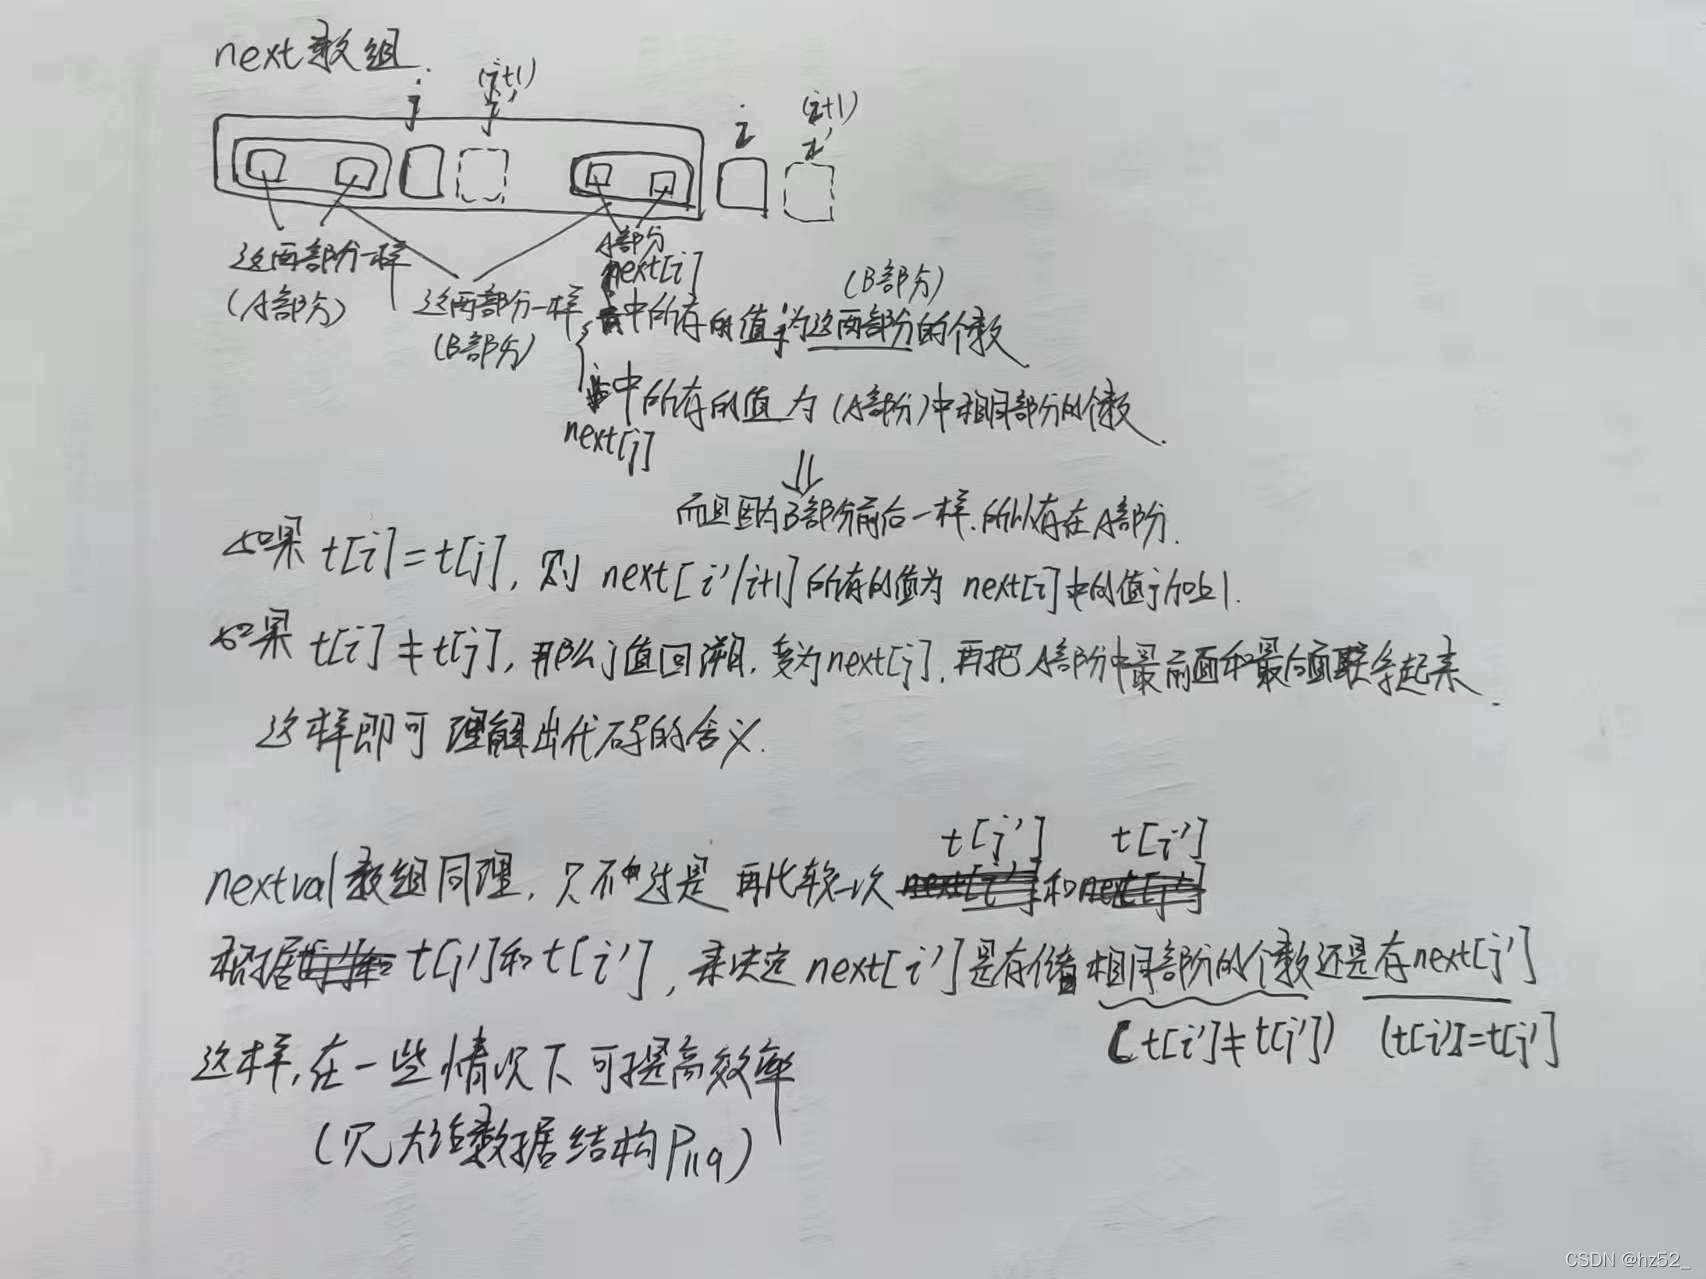 next数组.
j
(j+1)
j'
i
(i+1)
i'
这两部分一样
(A部分)
这两部分一样
(B部分)
A部分
next[i]
(B部分)
中所存的值j为这两部分的个数
中所存的值为(A部分)中相同部分的个数.
next[j]
而且因为B部分前后一样.所以存在A部分.
如果 t[i]=t[j], 则 next[i'/i+1]所存的值为 next[i]中的值j加上1.
如果 t[i]≠t[j], 那么j值回溯, 变为next[j], 再把A部分中最前面和最后面联系起来.
这样即可理解出代码的含义.
t[j'] t[i']
nextval数组同理, 只不过是 再比较一次 和
根据 t[j']和t[i'], 来决定next[i']是存储相同部分的个数还是存next[j']
(t[i']≠t[j']) (t[i']=t[j'])
这样, 在一些情况下可提高效率
(见大话数据结构P119)
CSDN @hz52_